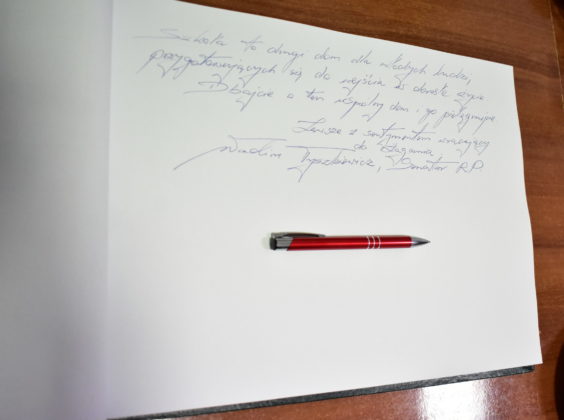 Szkoła to drugi dom dla młodych ludzi,
przygotowujących się do wejścia w dorosłe życie
Dbajcie o ten wspólny dom i go pielęgnujcie
Zawsze z sentymentem wracający
do Żagania
Wadim Tyszkiewicz, Senator R.P.